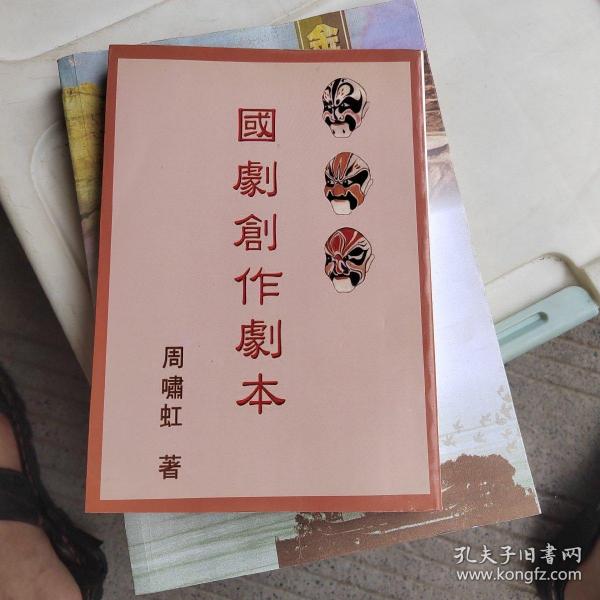 國劇創作劇本
周嘯虹 著
金
孔夫子旧书网
www.kongfz.com